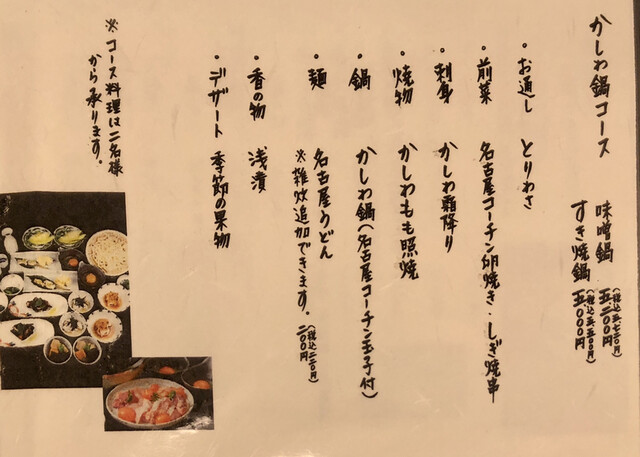 かしわ鍋コース
味噌鍋 五二〇〇円
(税込五七二〇円)
すき焼鍋 五〇〇〇円
(税込五五〇〇円)
・お通し とりわさ
・前菜 名古屋コーチン卵焼き・しぎ焼串
・刺身 かしわ霜降り
・焼物 かしわもも照焼
・鍋 かしわ鍋(名古屋コーチン玉子付)
・麺 名古屋うどん
※雑炊追加できます。二〇〇円
(税込二二〇円)
・香の物 浅漬
・デザート 季節の果物
※コース料理は二名様
から承ります。